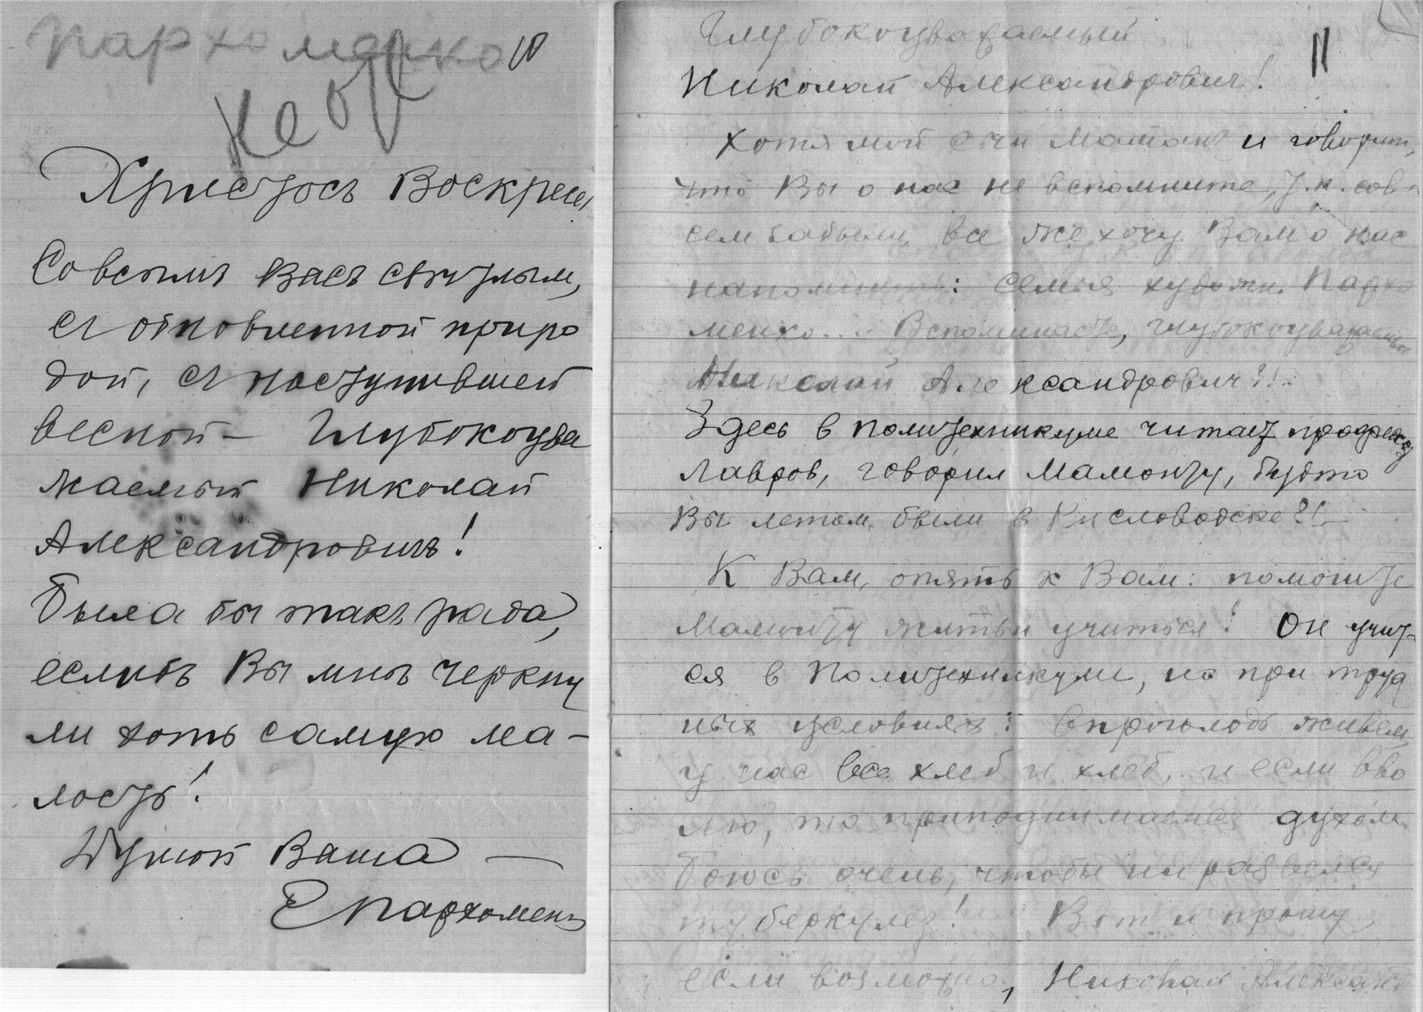 Пархоменко
10
Христосъ Воскресе,
Со всѣмъ Васъ свѣтлым,
съ обновленной приро
дой, съ наступившей
весной – Глубокоува
жаемый Николай
Александровичъ!
Была бы такъ рада,
еслибъ Вы мнѣ черкну
ли хоть самую ма–
лость!
Душой Ваша –
Е Пархоменко
11
Глубокоуважаемый
Николай Александрович!
Хотя мой сын Мамонт и говорит,
что Вы о нас не вспомните, т.к. сов
сем забыли, все же хочу Вам о нас
напомнить: семья художн. Пархо
менко... Вспоминаете, глубокоуважаемый
Николай Александрович?!..
Здесь в политехникуме читает профессор
Лавров, говорил Мамонту, будто
Вы летом были в Кисловодске?!–
К Вам, опять к Вам: помогите
Мамонту жить и учиться! Он учит-
ся в Политехникуме, но при труд
ных условиях: впроголодь живем,
у нас все хлеб и хлеб, и если вво
лю, то приподнимаемся духом.
Боюсь очень, чтобы не развелся
туберкулез! Вот и прошу
если возможно, Николай Александ.